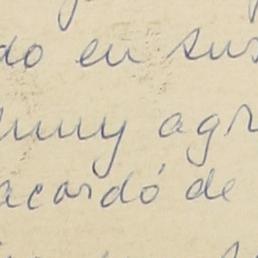 do en sus
muy agr
acordó de